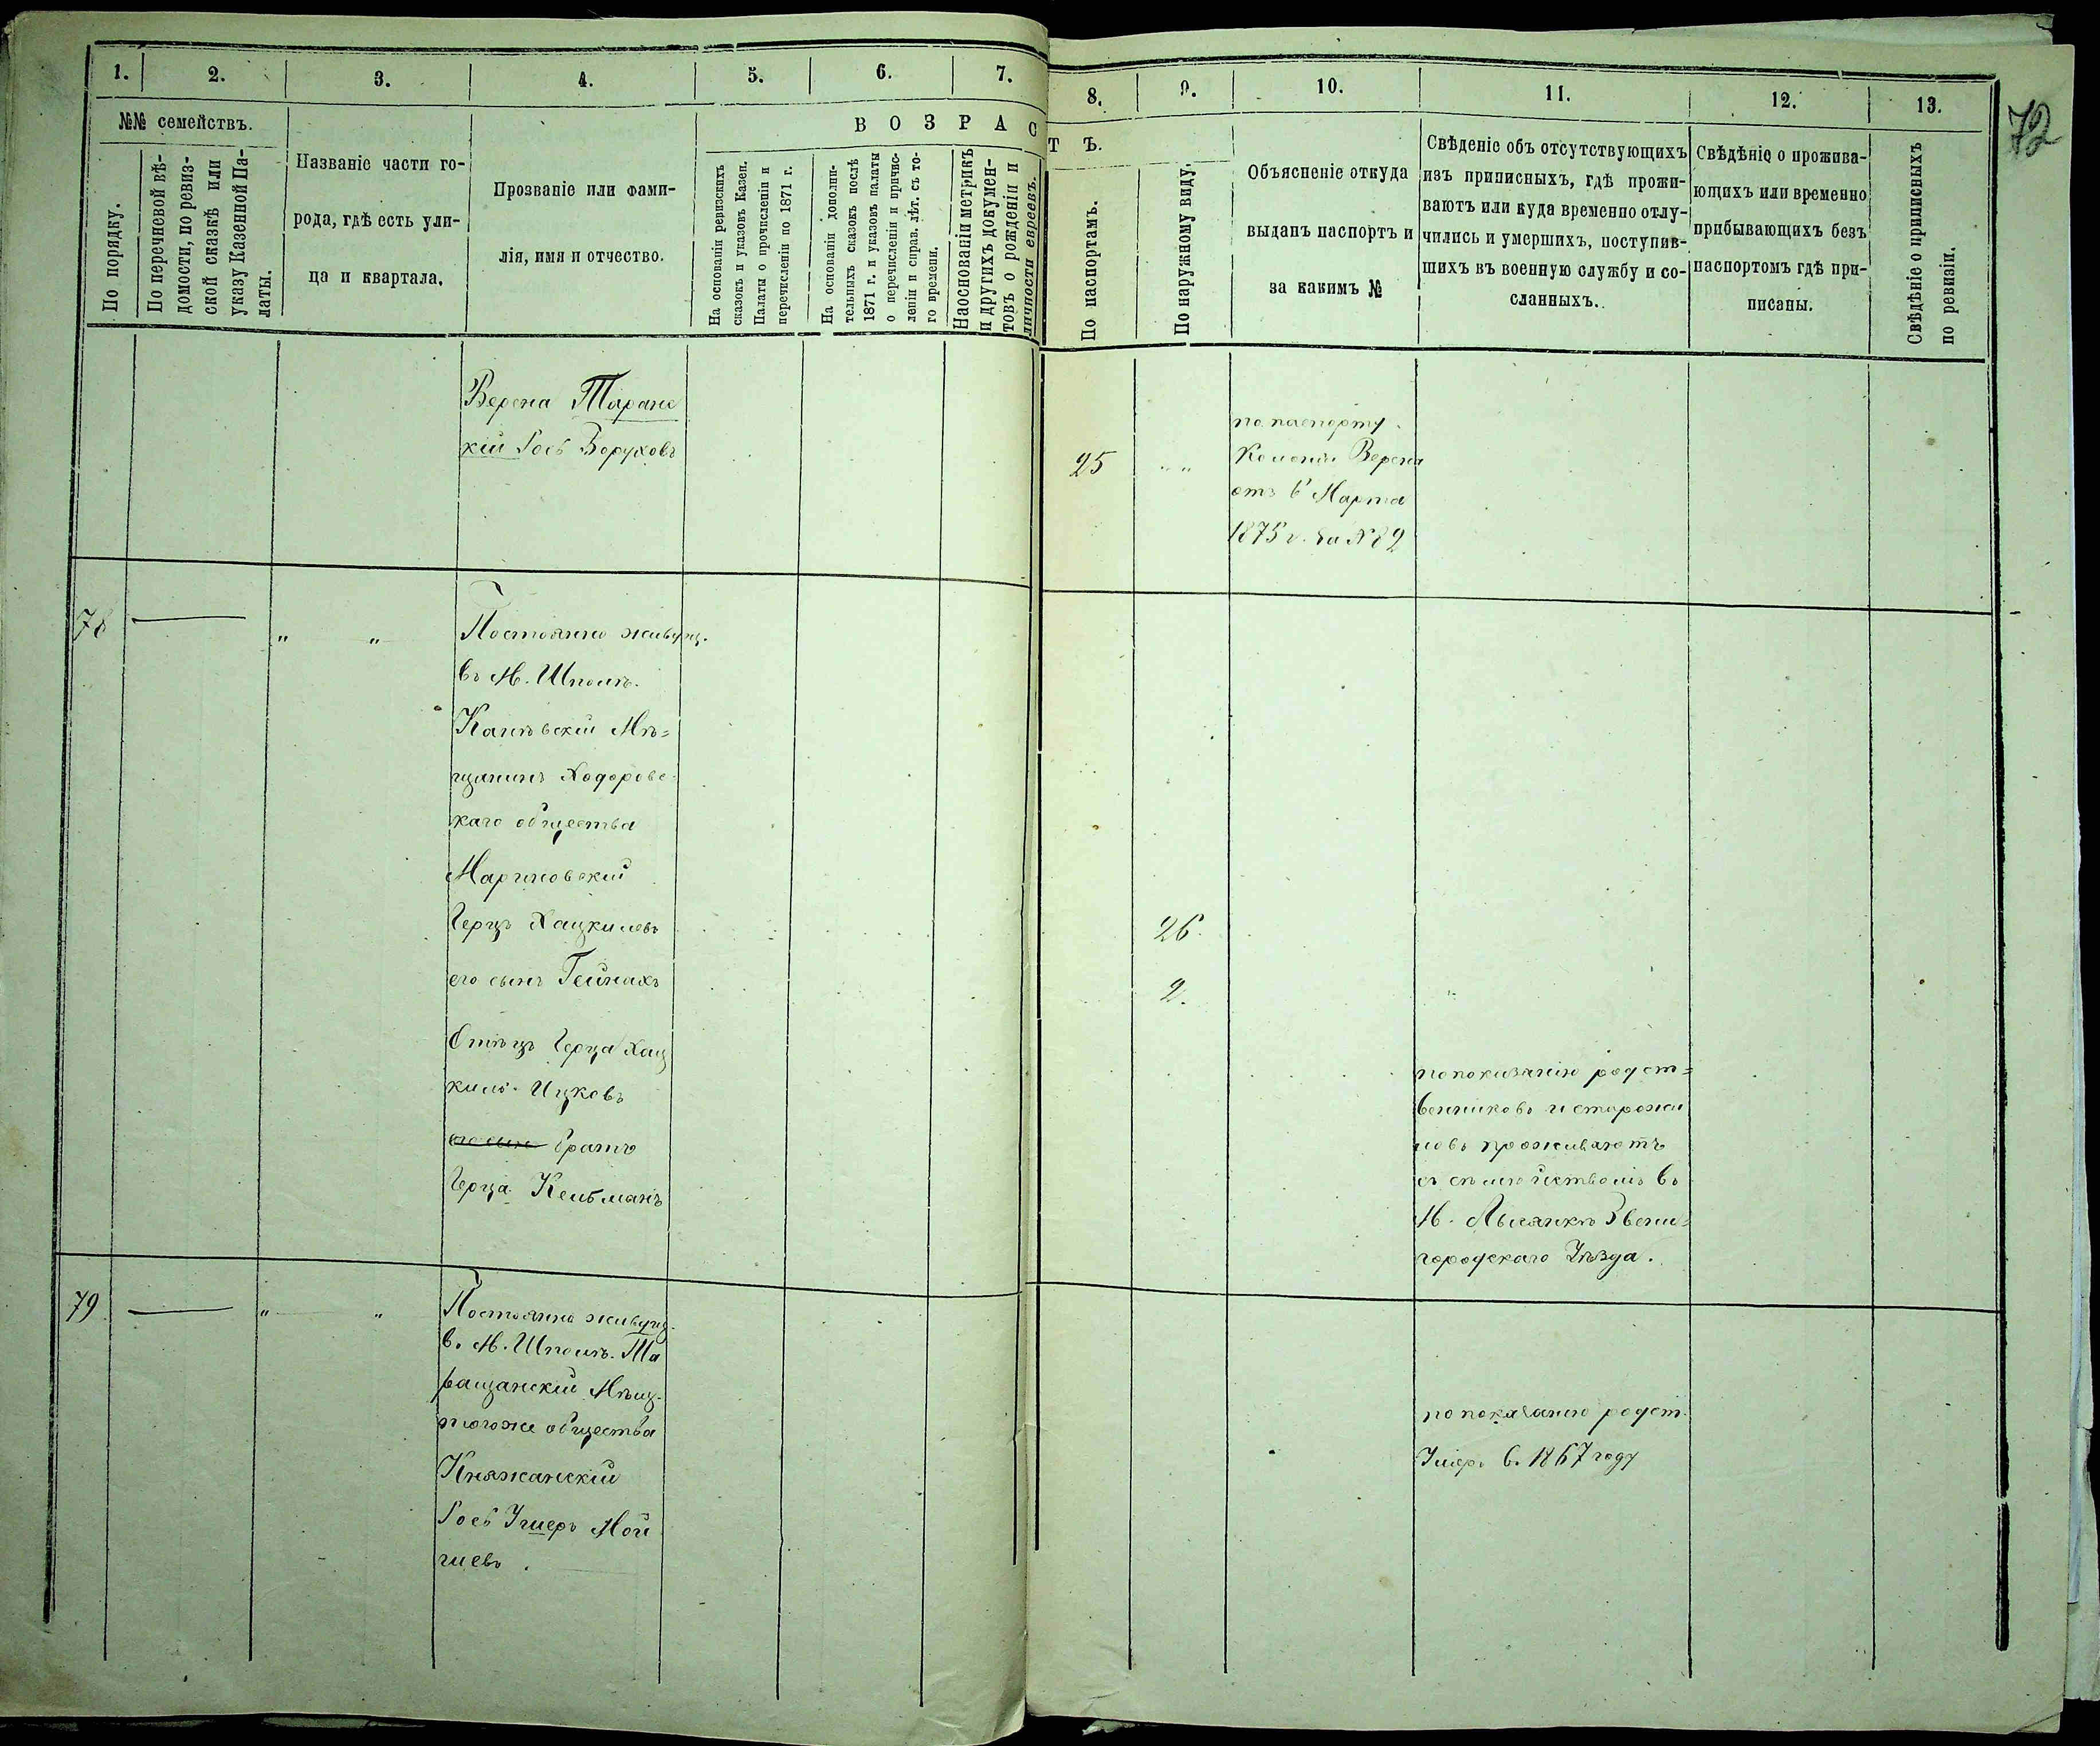 1.
2.
3.
4.
5.
6.
7.
8.
9.
10.
11.
12.
13.
72
№№ семействъ.
По порядку.
По перечневой вѣ-
домости, по ревиз-
ской сказкѣ или
указу Казенной Па-
латы.
Названіе части го-
рода, гдѣ есть ули-
ца и квартала.
Прозваніе или фами-
лія, имя и отчество.
ВОЗРАС
ТЪ.
На основаніи ревизскихъ
сказокъ и указовъ Казен.
Палаты о прочисленіи и
перечисленіи по 1871 г.
На основаніи дополни-
тельныхъ сказокъ послѣ
1871 г. и указовъ палаты
о перечисленіи и причис-
леніи и справ. лѣт. съ то-
го времени.
На основаніи метрикъ
и другихъ докумен-
товъ о рожденіи и
личности евреевъ.
По паспортамъ.
По наружному виду.
Объясненіе откуда
выданъ паспортъ и
за какимъ №
Свѣденіе объ отсутствующихъ
изъ приписныхъ, гдѣ прожи-
ваютъ или куда временно отлу-
чились и умершихъ, поступив-
шихъ въ военную службу и со-
сланныхъ.
Свѣдѣніе о прожива-
ющихъ или временно
прибывающихъ безъ
паспортомъ гдѣ при-
писаны.
Свѣдѣніе о приписныхъ
по ревизіи.
Таранс
кій Іосъ Боруховъ
25
" "
по паспорту
Колоніи
отъ 6 Марта
1875 г. за № 82
78
" "
Постоянно живущ.
въ М. Шполѣ.
Каневскій Мѣ=
щанинъ Ходоровс-
каго общества
Мариновскій
Герцъ Хацкилевъ
26
его сынъ Гейнахъ
2.
Отецъ Герца Хац
киль Ицковъ
братъ
Герца Кельманъ
по показанію родст=
венниковъ и старожи
ловъ проживаютъ
съ семействомъ въ
М. Лысянкѣ Звени=
городскаго Уѣзда.
79
" "
Постоянно живущ.
въ М. Шполѣ. Та
ращанскій Мѣщ.
того же общества
Княжанскій
Іосъ Ушеръ Мой
шевъ.
по показанію родст.
Умеръ въ 1867 году